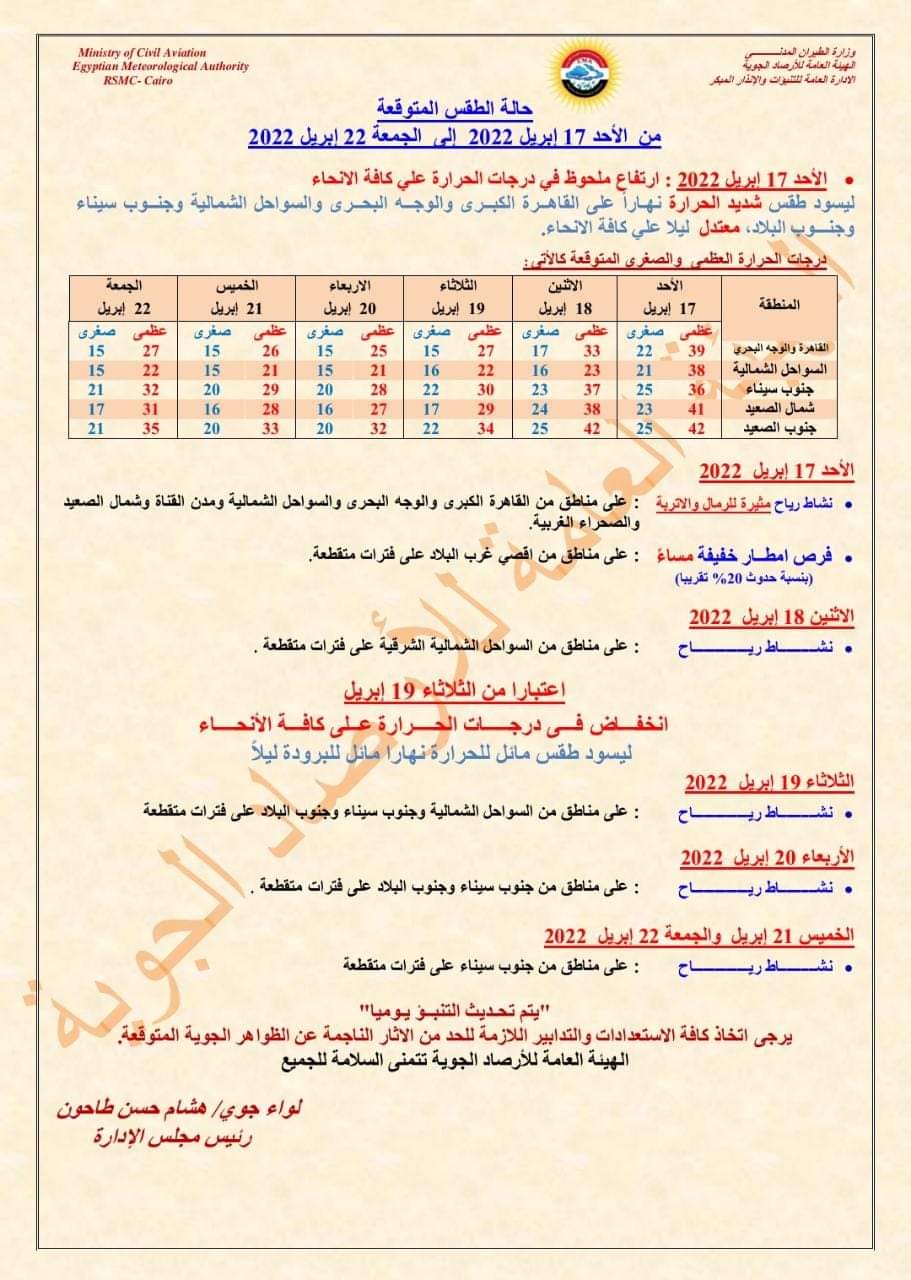 Ministry of Civil Aviation
Egyptian Meteorological Authority
RSMC- Cairo
وزارة الطيران المدنـــــي
الهيئة العامة للأرصاد الجوية
الادارة العامة للتنبؤات والإنذار المبكر
حالة الطقس المتوقعة
من الأحد 17 إبريل 2022 إلى الجمعة 22 إبريل 2022
• الأحد 17 إبريل 2022 : ارتفاع ملحوظ في درجات الحرارة علي كافة الانحاء
ليسود طقس شديد الحرارة نهـاراً على القاهرة الكبـرى والوجـه البحـرى والسواحل الشمالية وجنـوب سيناء
وجنــوب البلاد، معتدل ليلا علي كافة الانحاء.
درجات الحرارة العظمي والصغرى المتوقعة كالأتي:
المنطقة الأحد الاثنين الثلاثاء الاربعاء الخميس الجمعة
17 إبريل 18 إبريل 19 إبريل 20 إبريل 21 إبريل 22 إبريل
عظمى صغرى عظمى صغرى عظمى صغرى عظمى صغرى عظمى صغرى عظمى صغرى
القاهرة والوجه البحري 39 22 33 17 27 15 25 15 26 15 27 15
السواحل الشمالية 38 21 23 16 22 16 21 15 21 15 22 15
جنوب سيناء 36 25 37 23 30 22 28 20 29 20 32 21
شمال الصعيد 41 23 38 24 29 17 27 16 28 16 31 17
جنوب الصعيد 42 25 42 25 34 22 32 20 33 20 35 21
الأحد 17 إبريل 2022
• نشاط رياح مثيرة للرمال والاتربة : على مناطق من القاهرة الكبرى والوجه البحرى والسواحل الشمالية ومدن القناة وشمال الصعيد
والصحراء الغربية.
• فرص امطــار خفيفة مساءً : على مناطق من اقصي غرب البلاد على فترات متقطعة.
(بنسبة حدوث 20% تقريبا)
الاثنين 18 إبريل 2022
• نشـــــاط ريـــــــــــاح : على مناطق من السواحل الشمالية الشرقية على فترات متقطعة .
اعتبارا من الثلاثاء 19 إبريل
انخفــاض فــى درجــــات الحــــرارة علــى كافــة الأنحــاء
ليسود طقس مائل للحرارة نهارا مائل للبرودة ليلاً
الثلاثاء 19 إبريل 2022
• نشـــــاط ريـــــــــــاح : على مناطق من السواحل الشمالية وجنوب سيناء وجنوب البلاد على فترات متقطعة
الأربعاء 20 إبريل 2022
• نشـــــاط ريـــــــــــاح : على مناطق من جنوب سيناء وجنوب البلاد على فترات متقطعة .
الخميس 21 إبريل والجمعة 22 إبريل 2022
• نشـــــاط ريـــــــــــاح : على مناطق من جنوب سيناء على فترات متقطعة
"يتم تحـديث التنبـؤ يـوميا"
يرجى اتخاذ كافة الاستعدادات والتدابير اللازمة للحد من الاثار الناجمة عن الظواهر الجوية المتوقعة.
الهيئة العامة للأرصاد الجوية تتمنى السلامة للجميع
لواء جوي/ هشام حسن طاحون
رئيس مجلس الإدارة
الهيئة العامة للأرصاد الجوية